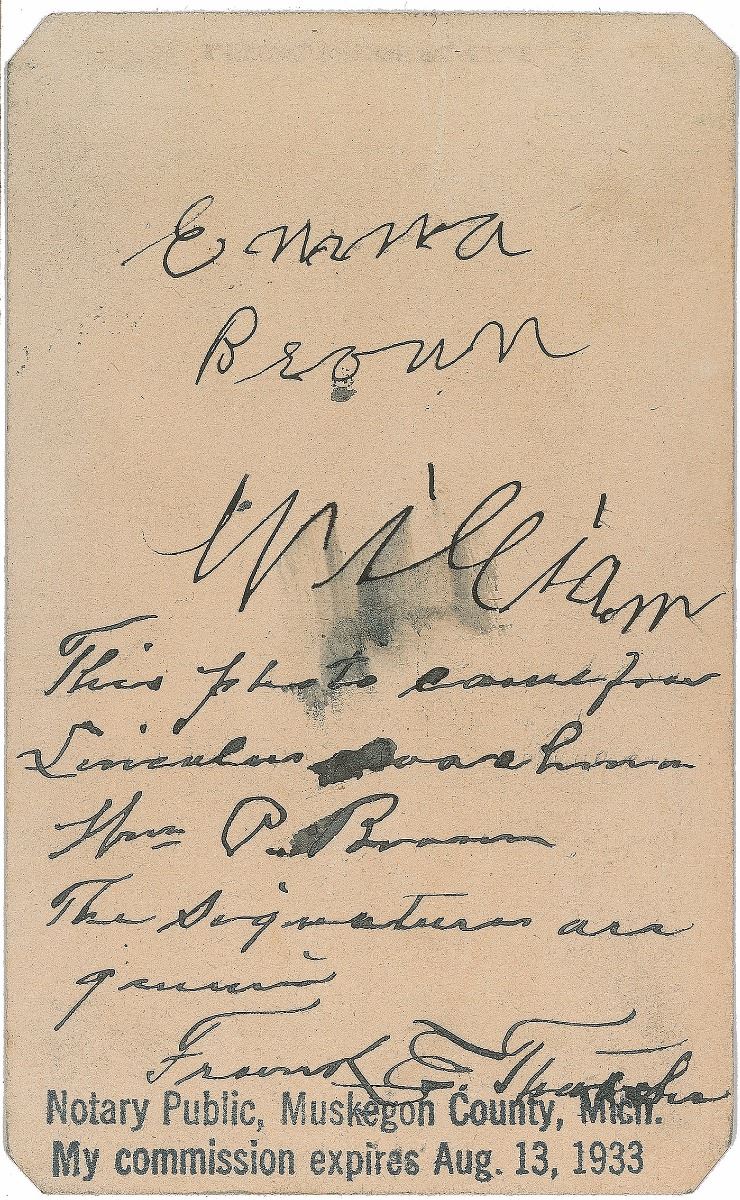 Emma
Brown
William
This photo came from
Lincoln's coachman
Wm P. Brown
The signatures are
genuine
Frank E.
Notary Public, Muskegon County, Mich.
My commission expires Aug. 13, 1933